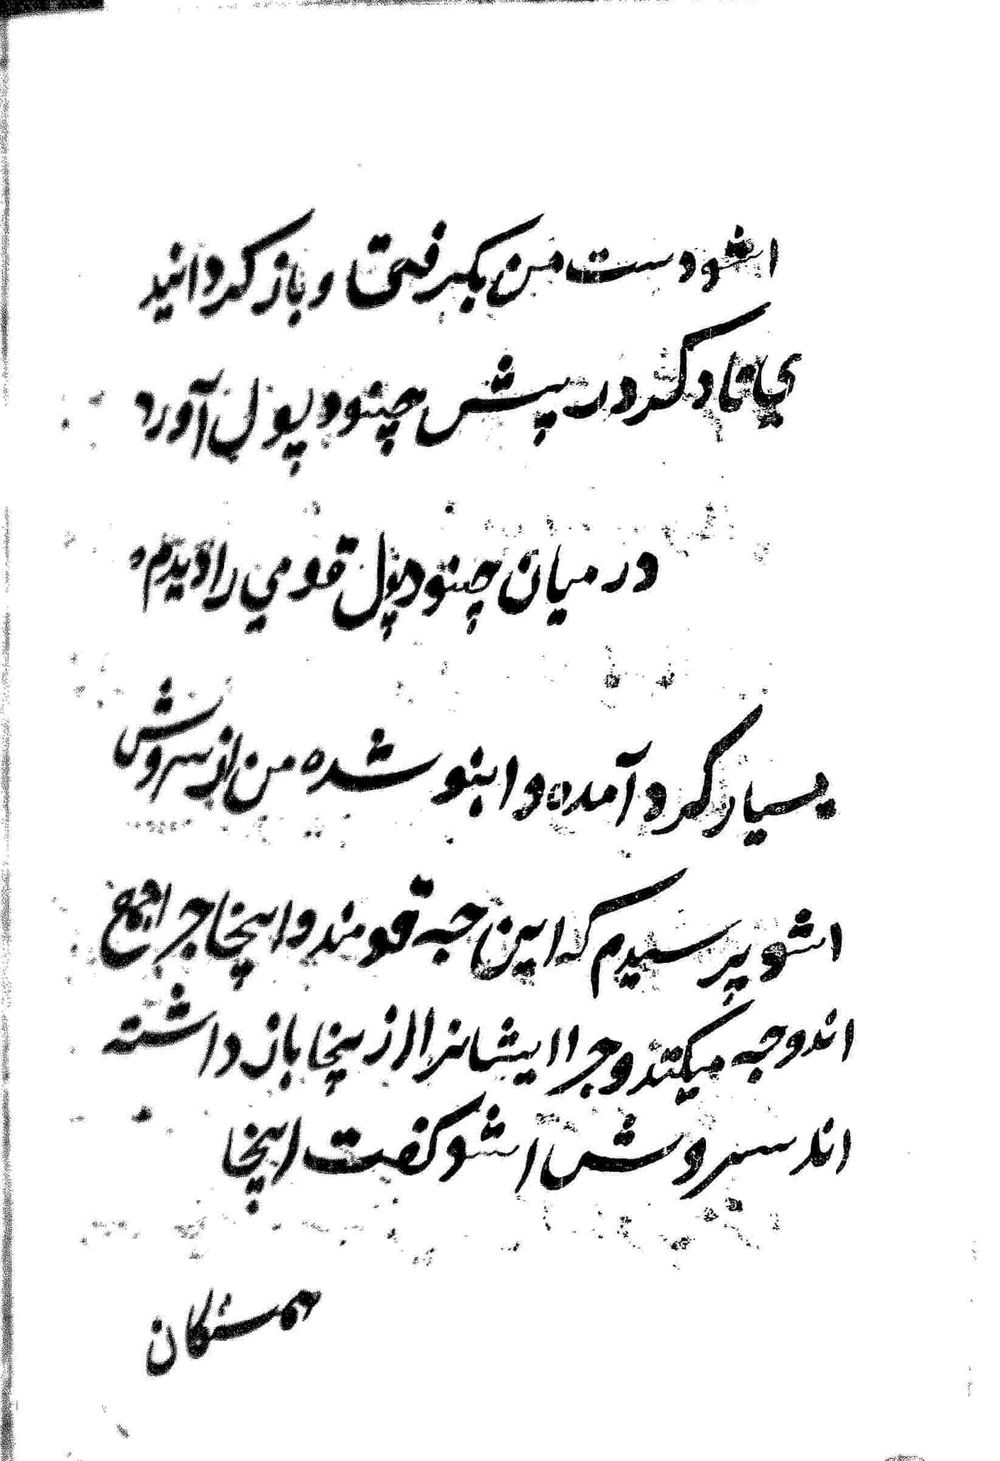 اشو دست من بکرفتی و باز کردانید
یا فاد کرد در پیش چنود پول آورد
در میان چنود پول قومی را دیدم
بسیار کرد آمده و ابنو شده من از سروش
اشو پرسیدم که این جه قومند و اینجا جرا جمع
اند و جه میکنند و جرا ایشانرا از ینجا باز داشته
اند سروش اشو کفت اینجا
همستکان